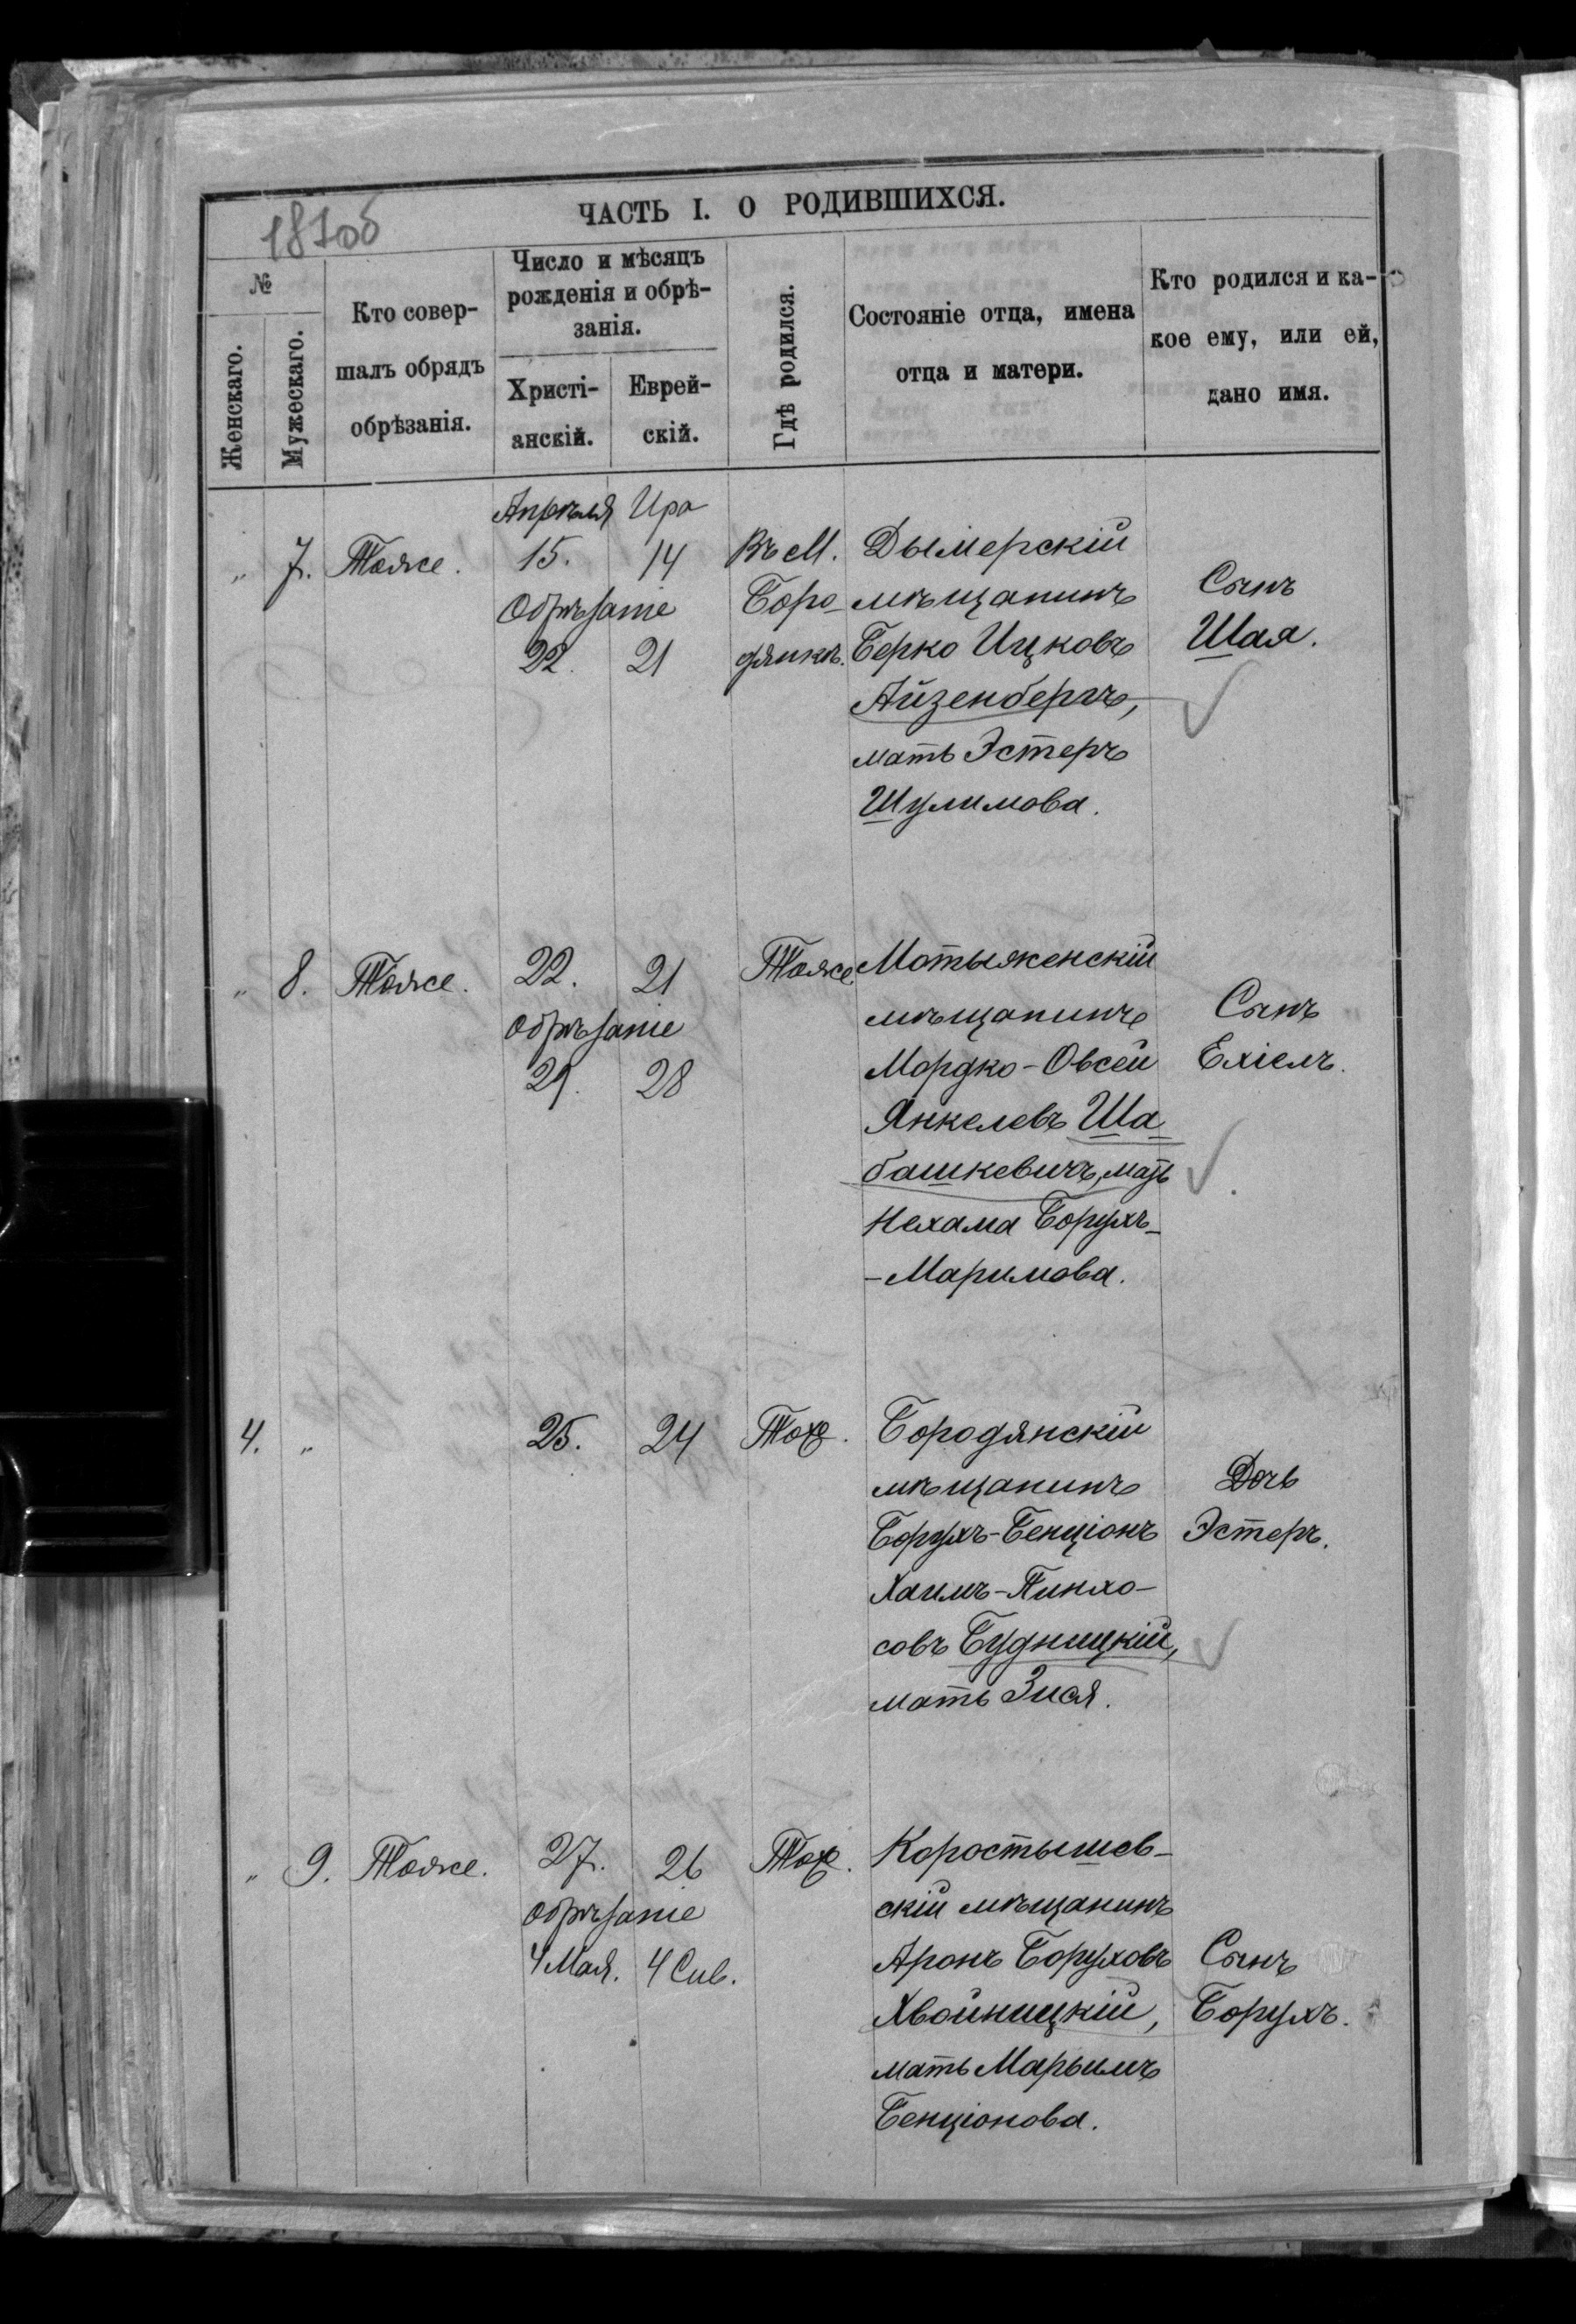 187об
ЧАСТЬ I. О РОДИВШИХСЯ.
№
Женскаго.
Мужескаго.
Кто совер-
шалъ обрядъ
обрѣзанія.
Число и мѣсяцъ
рожденія и обрѣ-
занія.
Христі-
анскій.
Еврей-
скій.
Гдѣ родился.
Состояніе отца, имена
отца и матери.
Кто родился и ка-
кое ему, или ей,
дано имя.
Апрѣля Ира
„ 7. Тоже. 15. 14 Въ М. Дымерскій
Обрѣзаніе Боро- мѣщанинъ Сынъ
22. 21 дянкѣ. Берко Ицковъ Шая.
Айзенбергъ,
мать Эстеръ
Шулимова.
„ 8. Тоже. 22. 21 Тоже Мотыженскій
обрѣзаніе мѣщанинъ Сынъ
29. 28 Мордко-Овсей Ехіелъ.
Янкелевъ Ша-
башкевичъ, мать
Нехама Борухъ-
-Маримова.
4. „ 25. 24 Тоже. Бородянскій
мѣщанинъ Дочь
Борухъ-Бенціонъ Эстеръ.
Хаимъ-Пинхо-
совъ Будницкій,
мать Зися.
„ 9. Тоже. 27. 26 Тоже. Коростышев-
обрѣзаніе скій мѣщанинъ
4 Мая. 4 Сив. Аронъ Боруховъ Сынъ
Хвойницкій, Борухъ.
мать Марьимъ
Бенціонова.